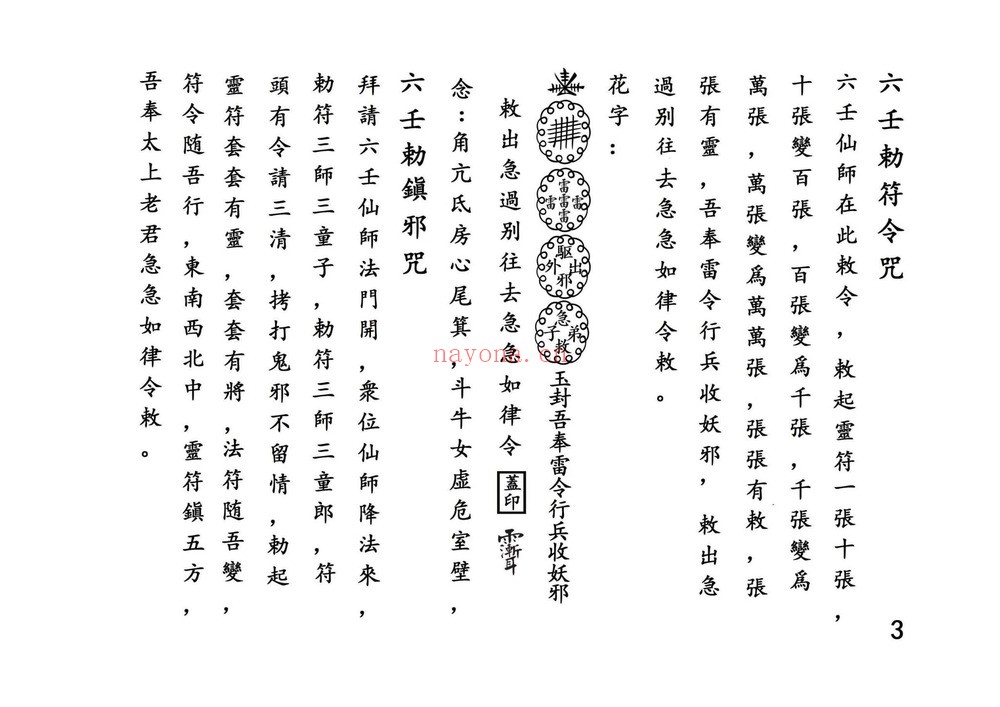 六壬勅符令咒
六壬仙師在此敕令，敕起靈符一張十張，
十張變百張，百張變爲千張，千張變爲
萬張，萬張變爲萬萬張，張張有敕，張
張有靈，吾奉雷令行兵收妖邪，敕出急
過別往去急急如律令敕。
花字：
雷雷雷雷雷 驅出外邪 急弟子救 玉封吾奉雷令行兵收妖邪
敕出急過別往去急急如律令 蓋印
念：角亢氐房心尾箕，斗牛女虛危室壁，
六壬勅鎮邪咒
拜請六壬仙師法門開，衆位仙師降法來，
勅符三師三童子，勅符三師三童郎，符
頭有令請三清，拷打鬼邪不留情，勅起
靈符套套有靈，套套有將，法符随吾變，
符令随吾行，東南西北中，靈符鎮五方，
吾奉太上老君急急如律令敕。
3
nayona.cn